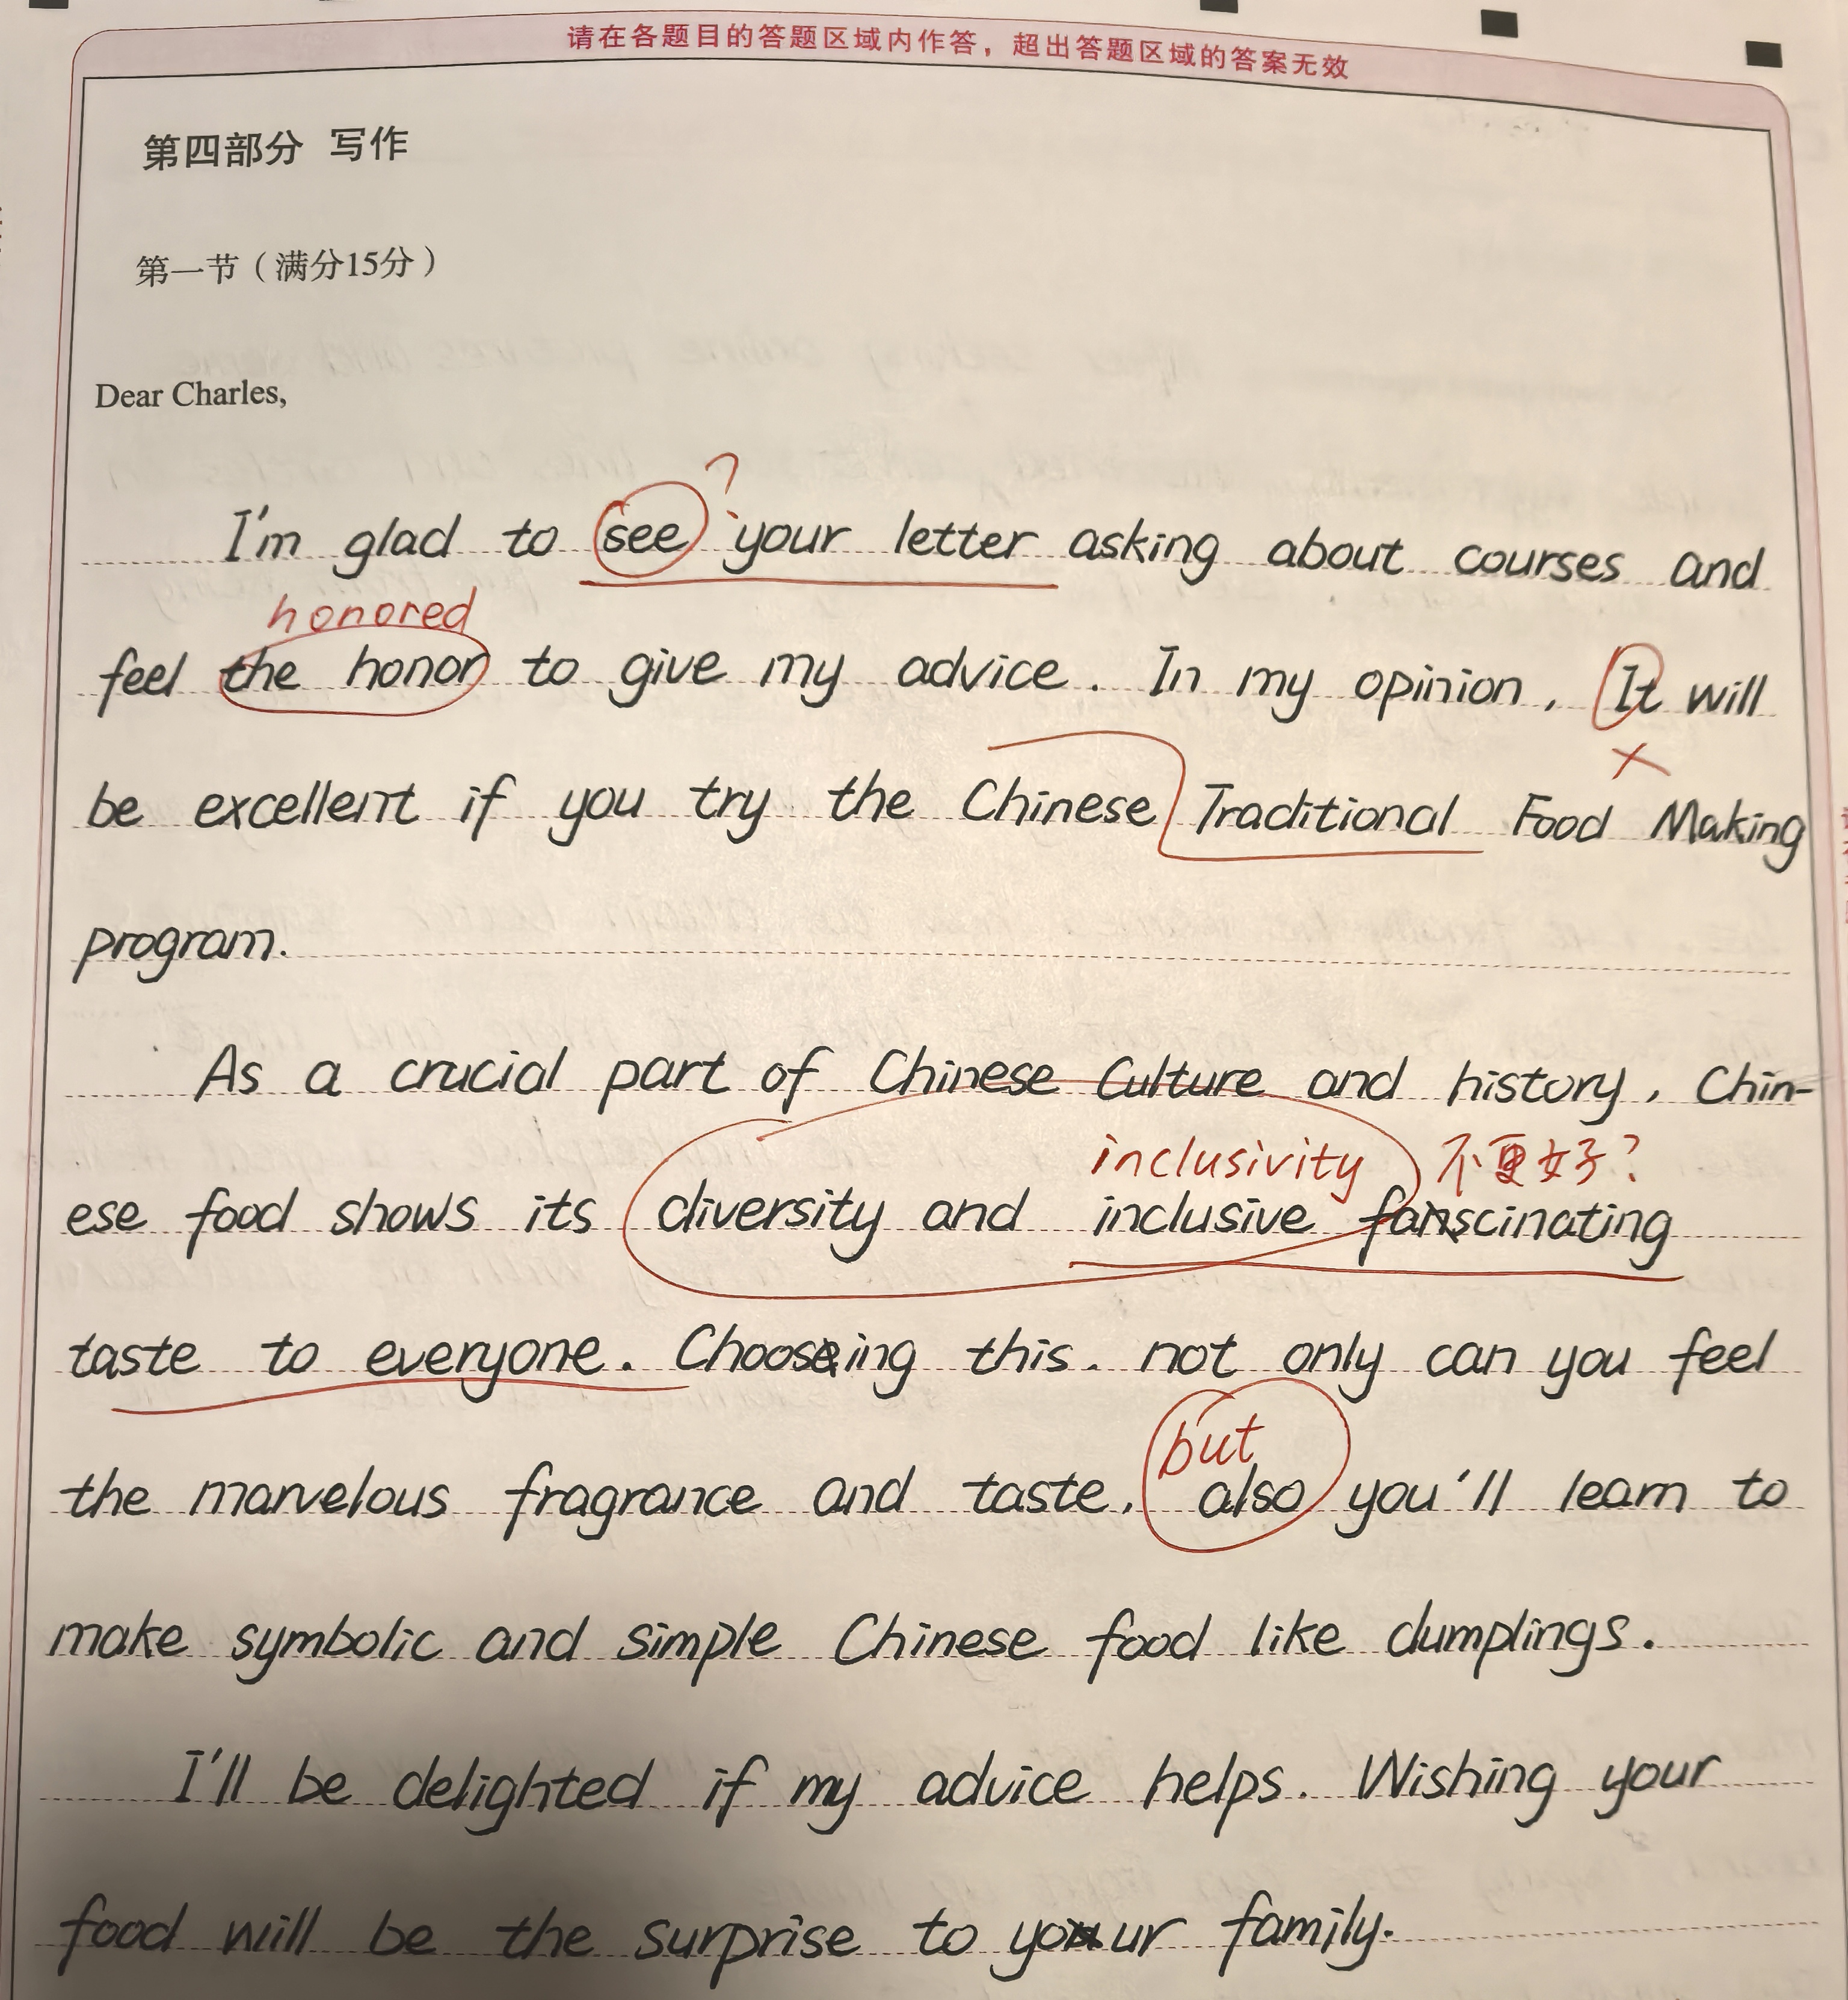 请在各题目的答题区域内作答，超出答题区域的答案无效
第四部分 写作
第一节（满分15分）
Dear Charles,
?
I'm glad to see your letter asking about courses and
honored
feel the honor to give my advice. In my opinion, It will
×
be excellent if you try the Chinese Traditional Food Making
program.
As a crucial part of Chinese Culture and history, Chin-
inclusivity 不更好?
ese food shows its diversity and inclusive fascinating
taste to everyone. Choosing this. not only can you feel
but
the marvelous fragrance and taste, also you'll learn to
make symbolic and simple Chinese food like dumplings.
I'll be delighted if my advice helps. Wishing your
food will be the surprise to your family.